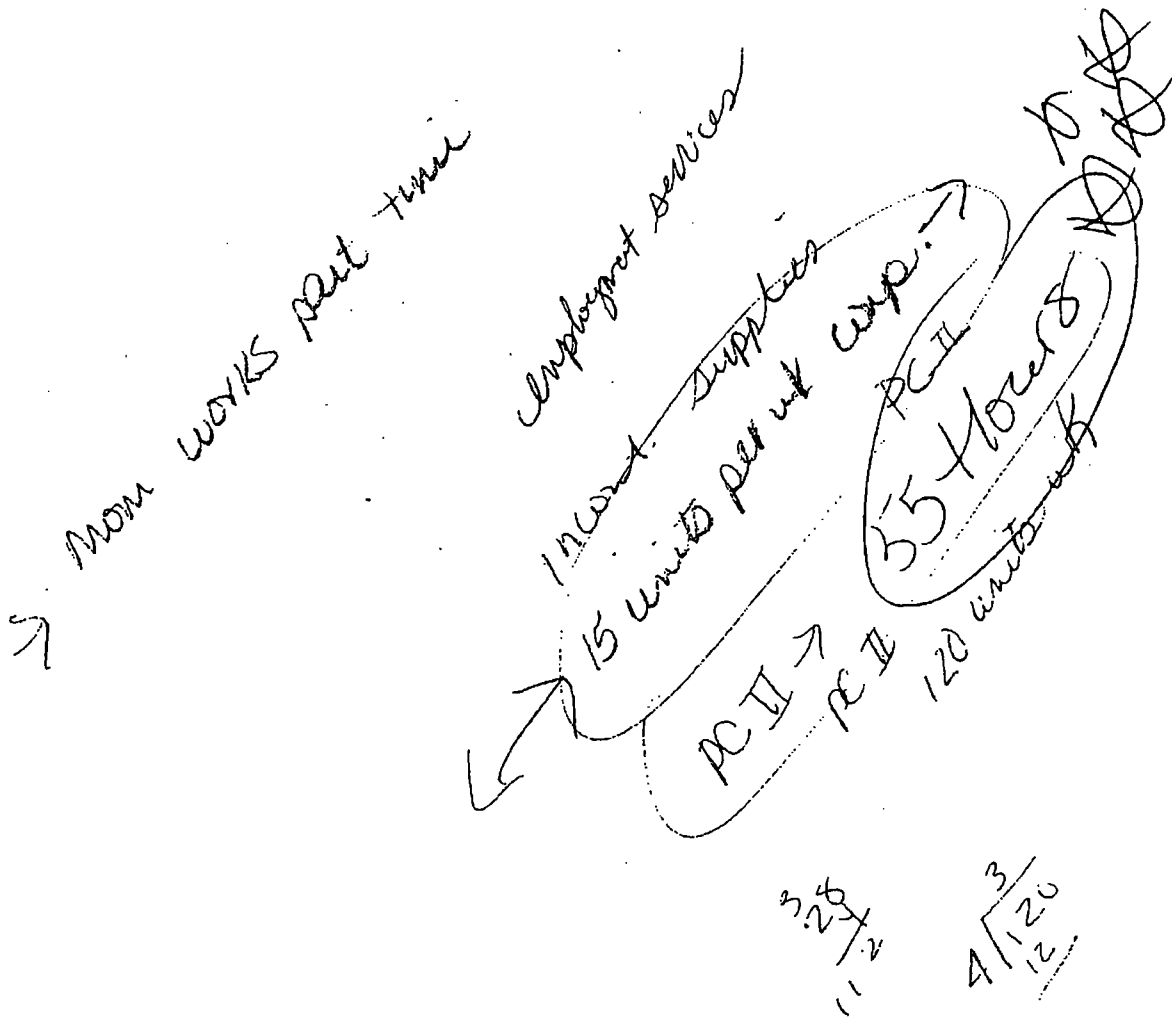 → Mom works part time
employmet services
Incont. supplies
15 units per wk
PC II →
PC II
PC II
35 Hours
120 units wk
28
112
3
4/120
12